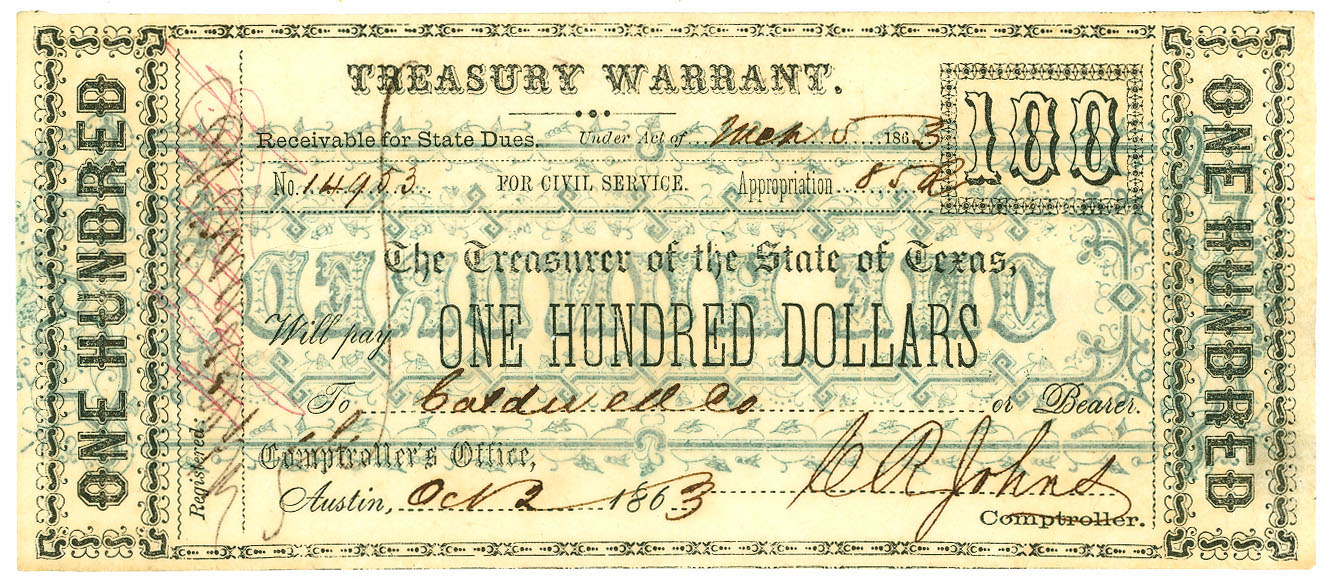 TREASURY WARRANT.
100
Receivable for State Dues. Under Act of Mch 5 1863
No. 14953 FOR CIVIL SERVICE. Appropriation 85
The Treasurer of the State of Texas,
Will pay ONE HUNDRED DOLLARS
To Caldwell Co or Bearer.
Comptroller's Office,
Austin, Oct 2 1863 C R Johns
Comptroller.
ONE HUNDRED
ONE HUNDRED
Registered.
ONE HUNDRED